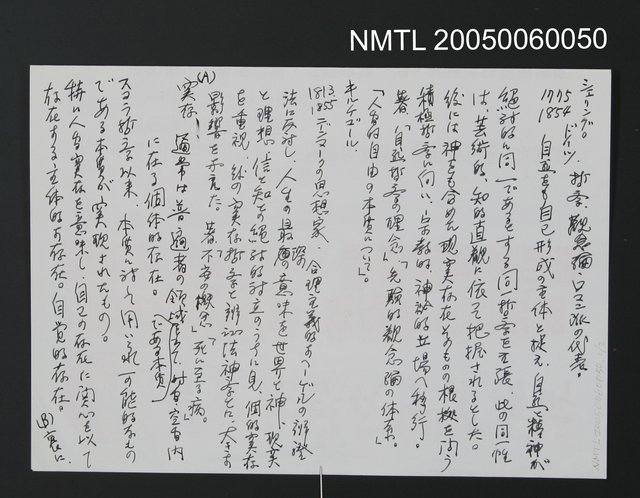 NMTL 20050060050
シェリング。
1775 1854 ドイツ 哲学、観念論 ロマン派の代表。
自然を自己形成の主体と捉え、自然と精神が
絶対的に同一であるとする同一哲学を主張、此の同一性
は、芸術的、知的直観に依って把握されるとした。
後には神をも含めた現実存在そのものの根拠を問う
積極哲学に向い、宗教的、神秘的立場へ移行。
著、「自然哲学の理念」「先験的観念論の体系」
「人間的自由の本質について」。
キルケゴール、
1813 1855 デンマークの思想家、合理主義的なヘーゲルの辯證
法に反対し、人生の最深の意味を世界と神、現実
と理想、信と知との絶対的対立のうちに見、個的実存
を重視、後の実存哲学と辯証法神学とに大きな
影響を与えた。著「不安の概念」「死に至る病」
(A)
実存 通常は普遍者の領域である本質に対し、時間空間内
に在る個体的存在。
スコラ哲学以来、本質に対して用いられ可能的なもの
である本質が実現されたもの。
特に人間的実存を意味し自己の存在に関心を以て
存在する主体的な存在。自覚的存在。
(B)
NMTL20050060050